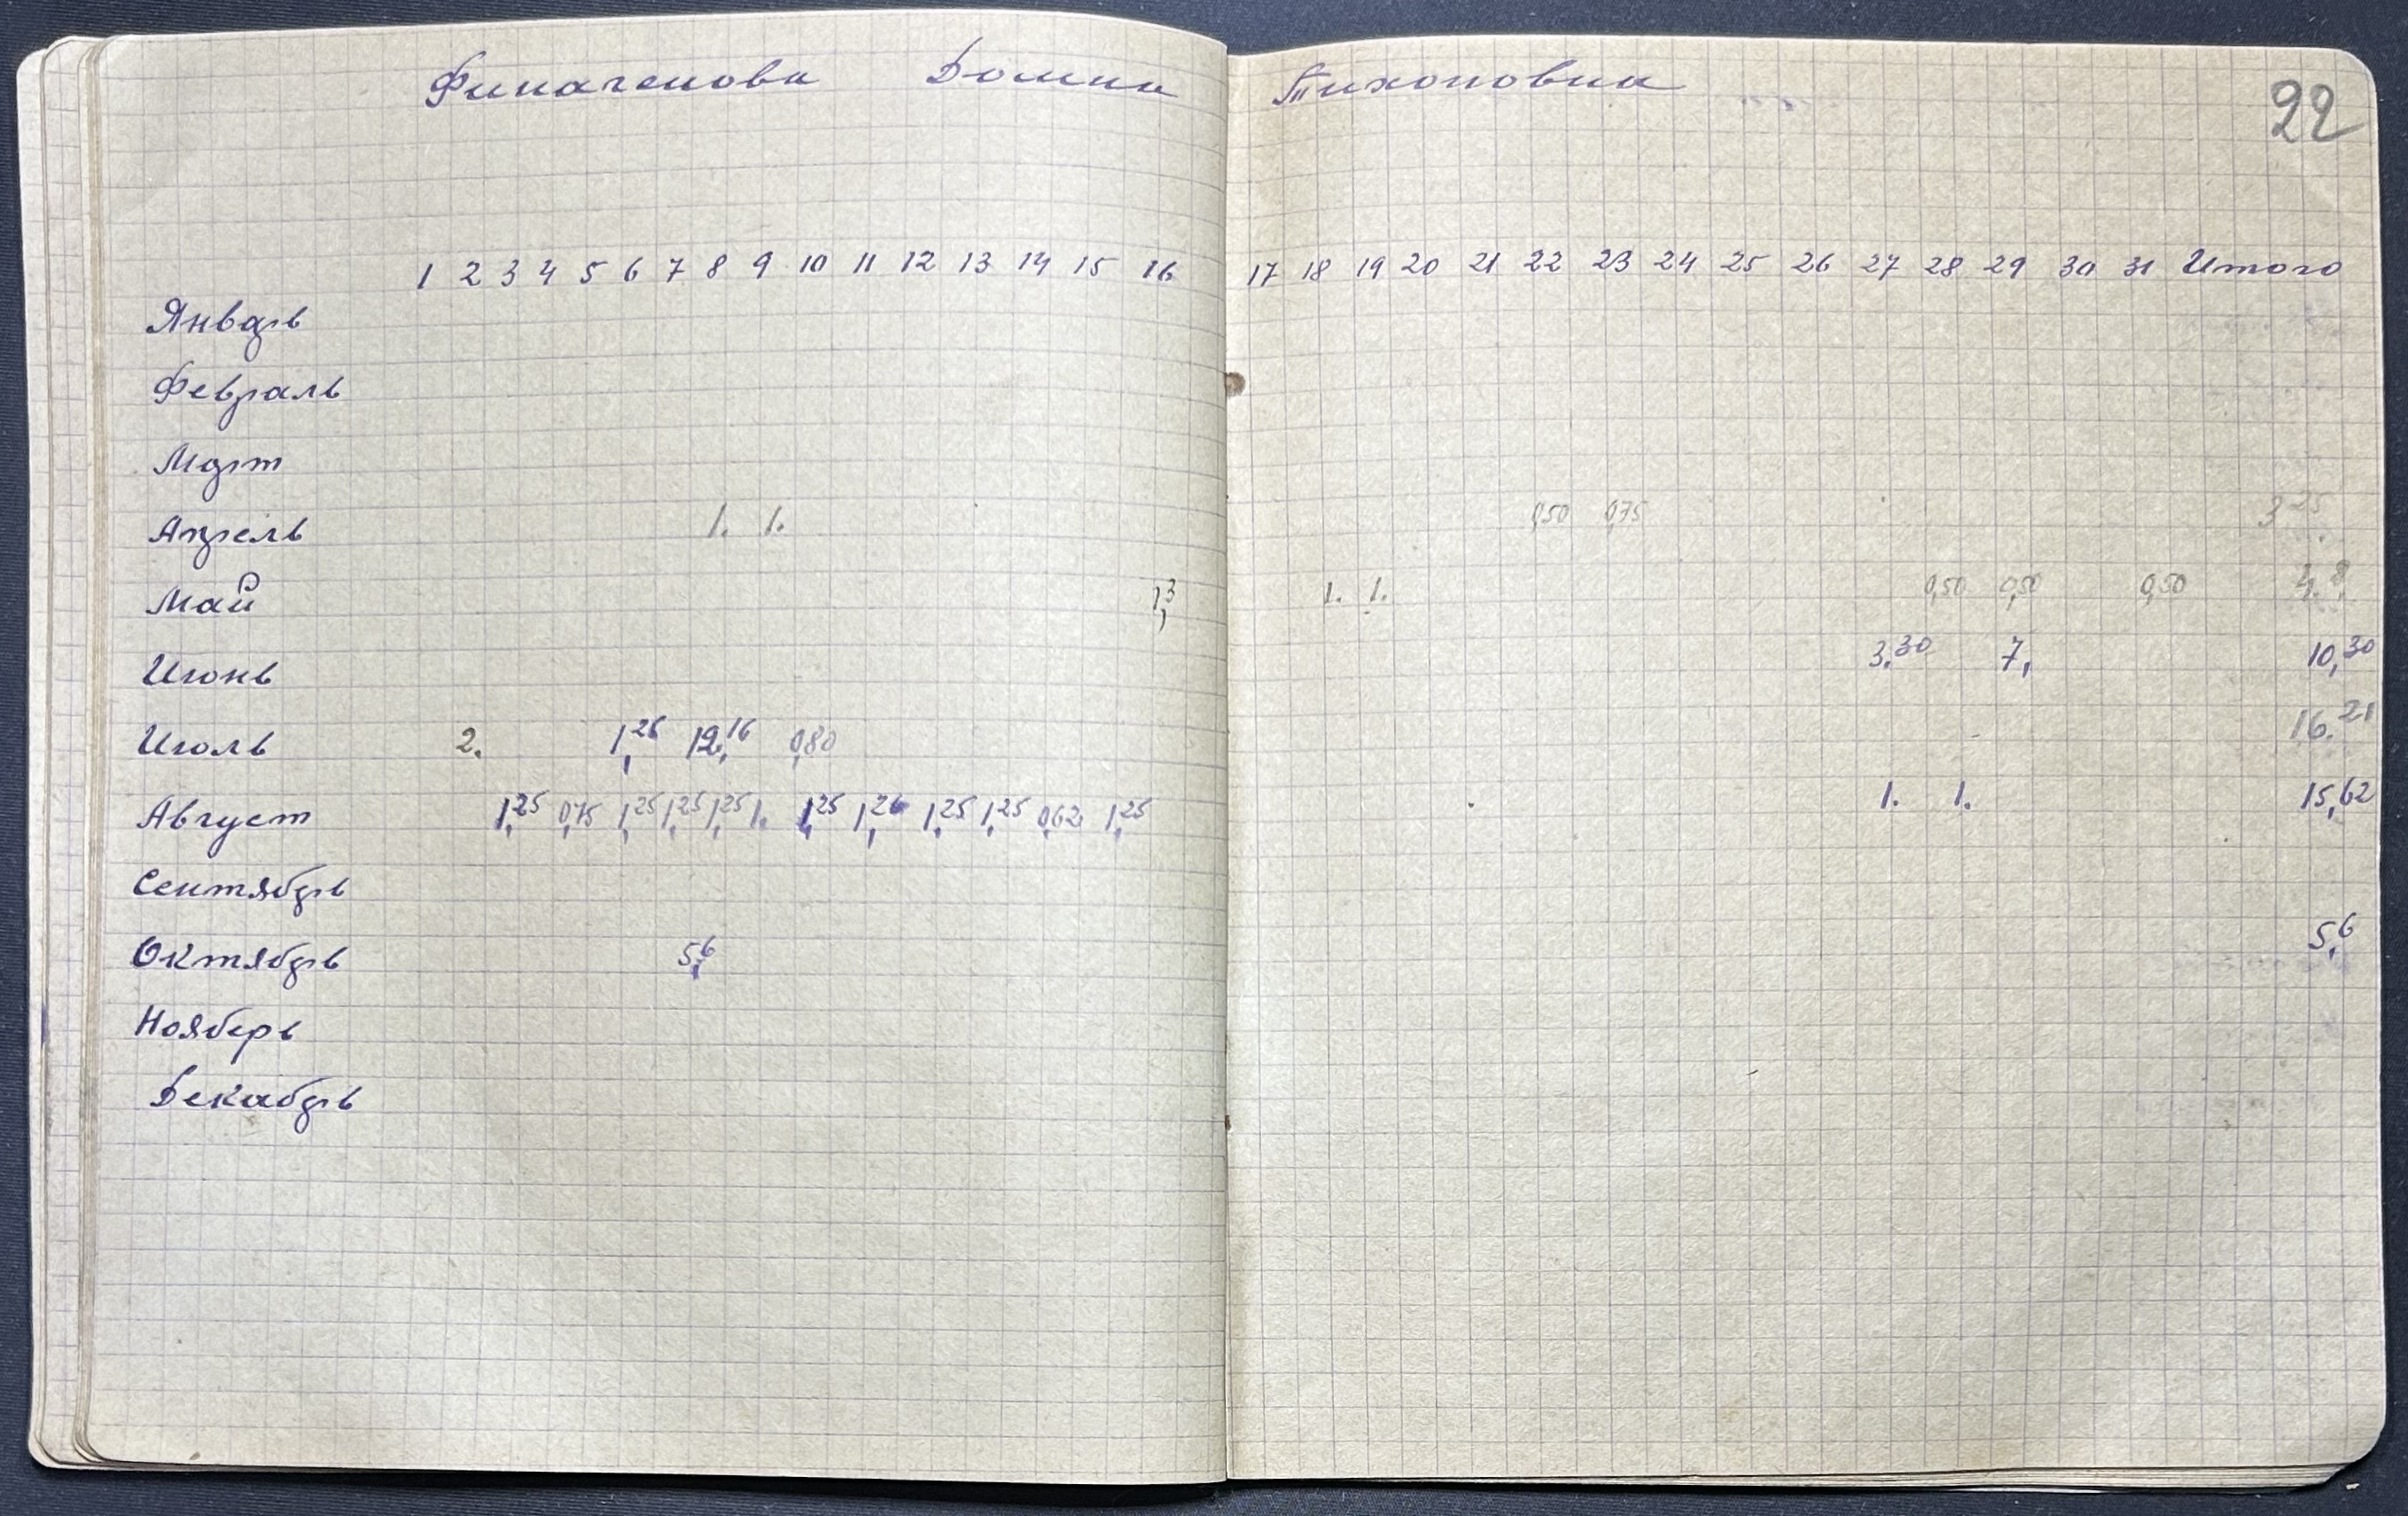 Финагенова Домна Тихоновна
22
1 2 3 4 5 6 7 8 9 10 11 12 13 14 15 16 17 18 19 20 21 22 23 24 25 26 27 28 29 30 31 Итого
Январь
Февраль
Март
Апрель 1. 1. 0,50 0,75 3 25
Май 1,3 1. 1. 0,50 0,50 0,50 4.8
Июнь 3,30 7, 10,30
Июль 2. 1,25 12,16 0,80 16.21
Август 1,25 0,75 1,25 1,25 1,25 1. 1,25 1,26 1,25 1,25 0,62 1,25 1. 1. 15,62
Сентябрь
Октябрь 5,6 5,6
Нояберь
Декабрь